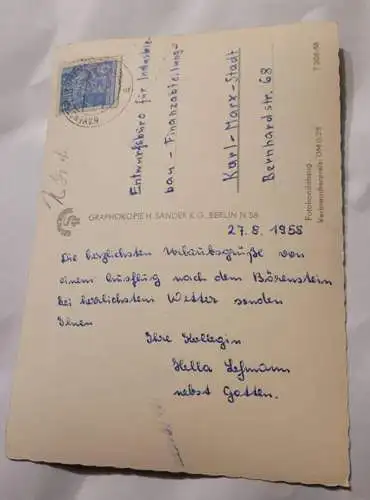 Entwurfsbüro für Industrie-
bau - Finanzabteilung-
Karl-Marx-Stadt
Bernhardstr. 68
GRAPHOKOPIE H. SANDER K.G., BERLIN N 58
Fotohandabzug
Verbraucherpreis: DM 0.25
27.8. 1958
Die herzlichsten Urlaubsgrüße von
einem Ausflug nach dem Bärenstein
bei herrlichstem Wetter senden
Ihnen
Ihre Kollegin
Hella Lehmann
nebst Gatten.